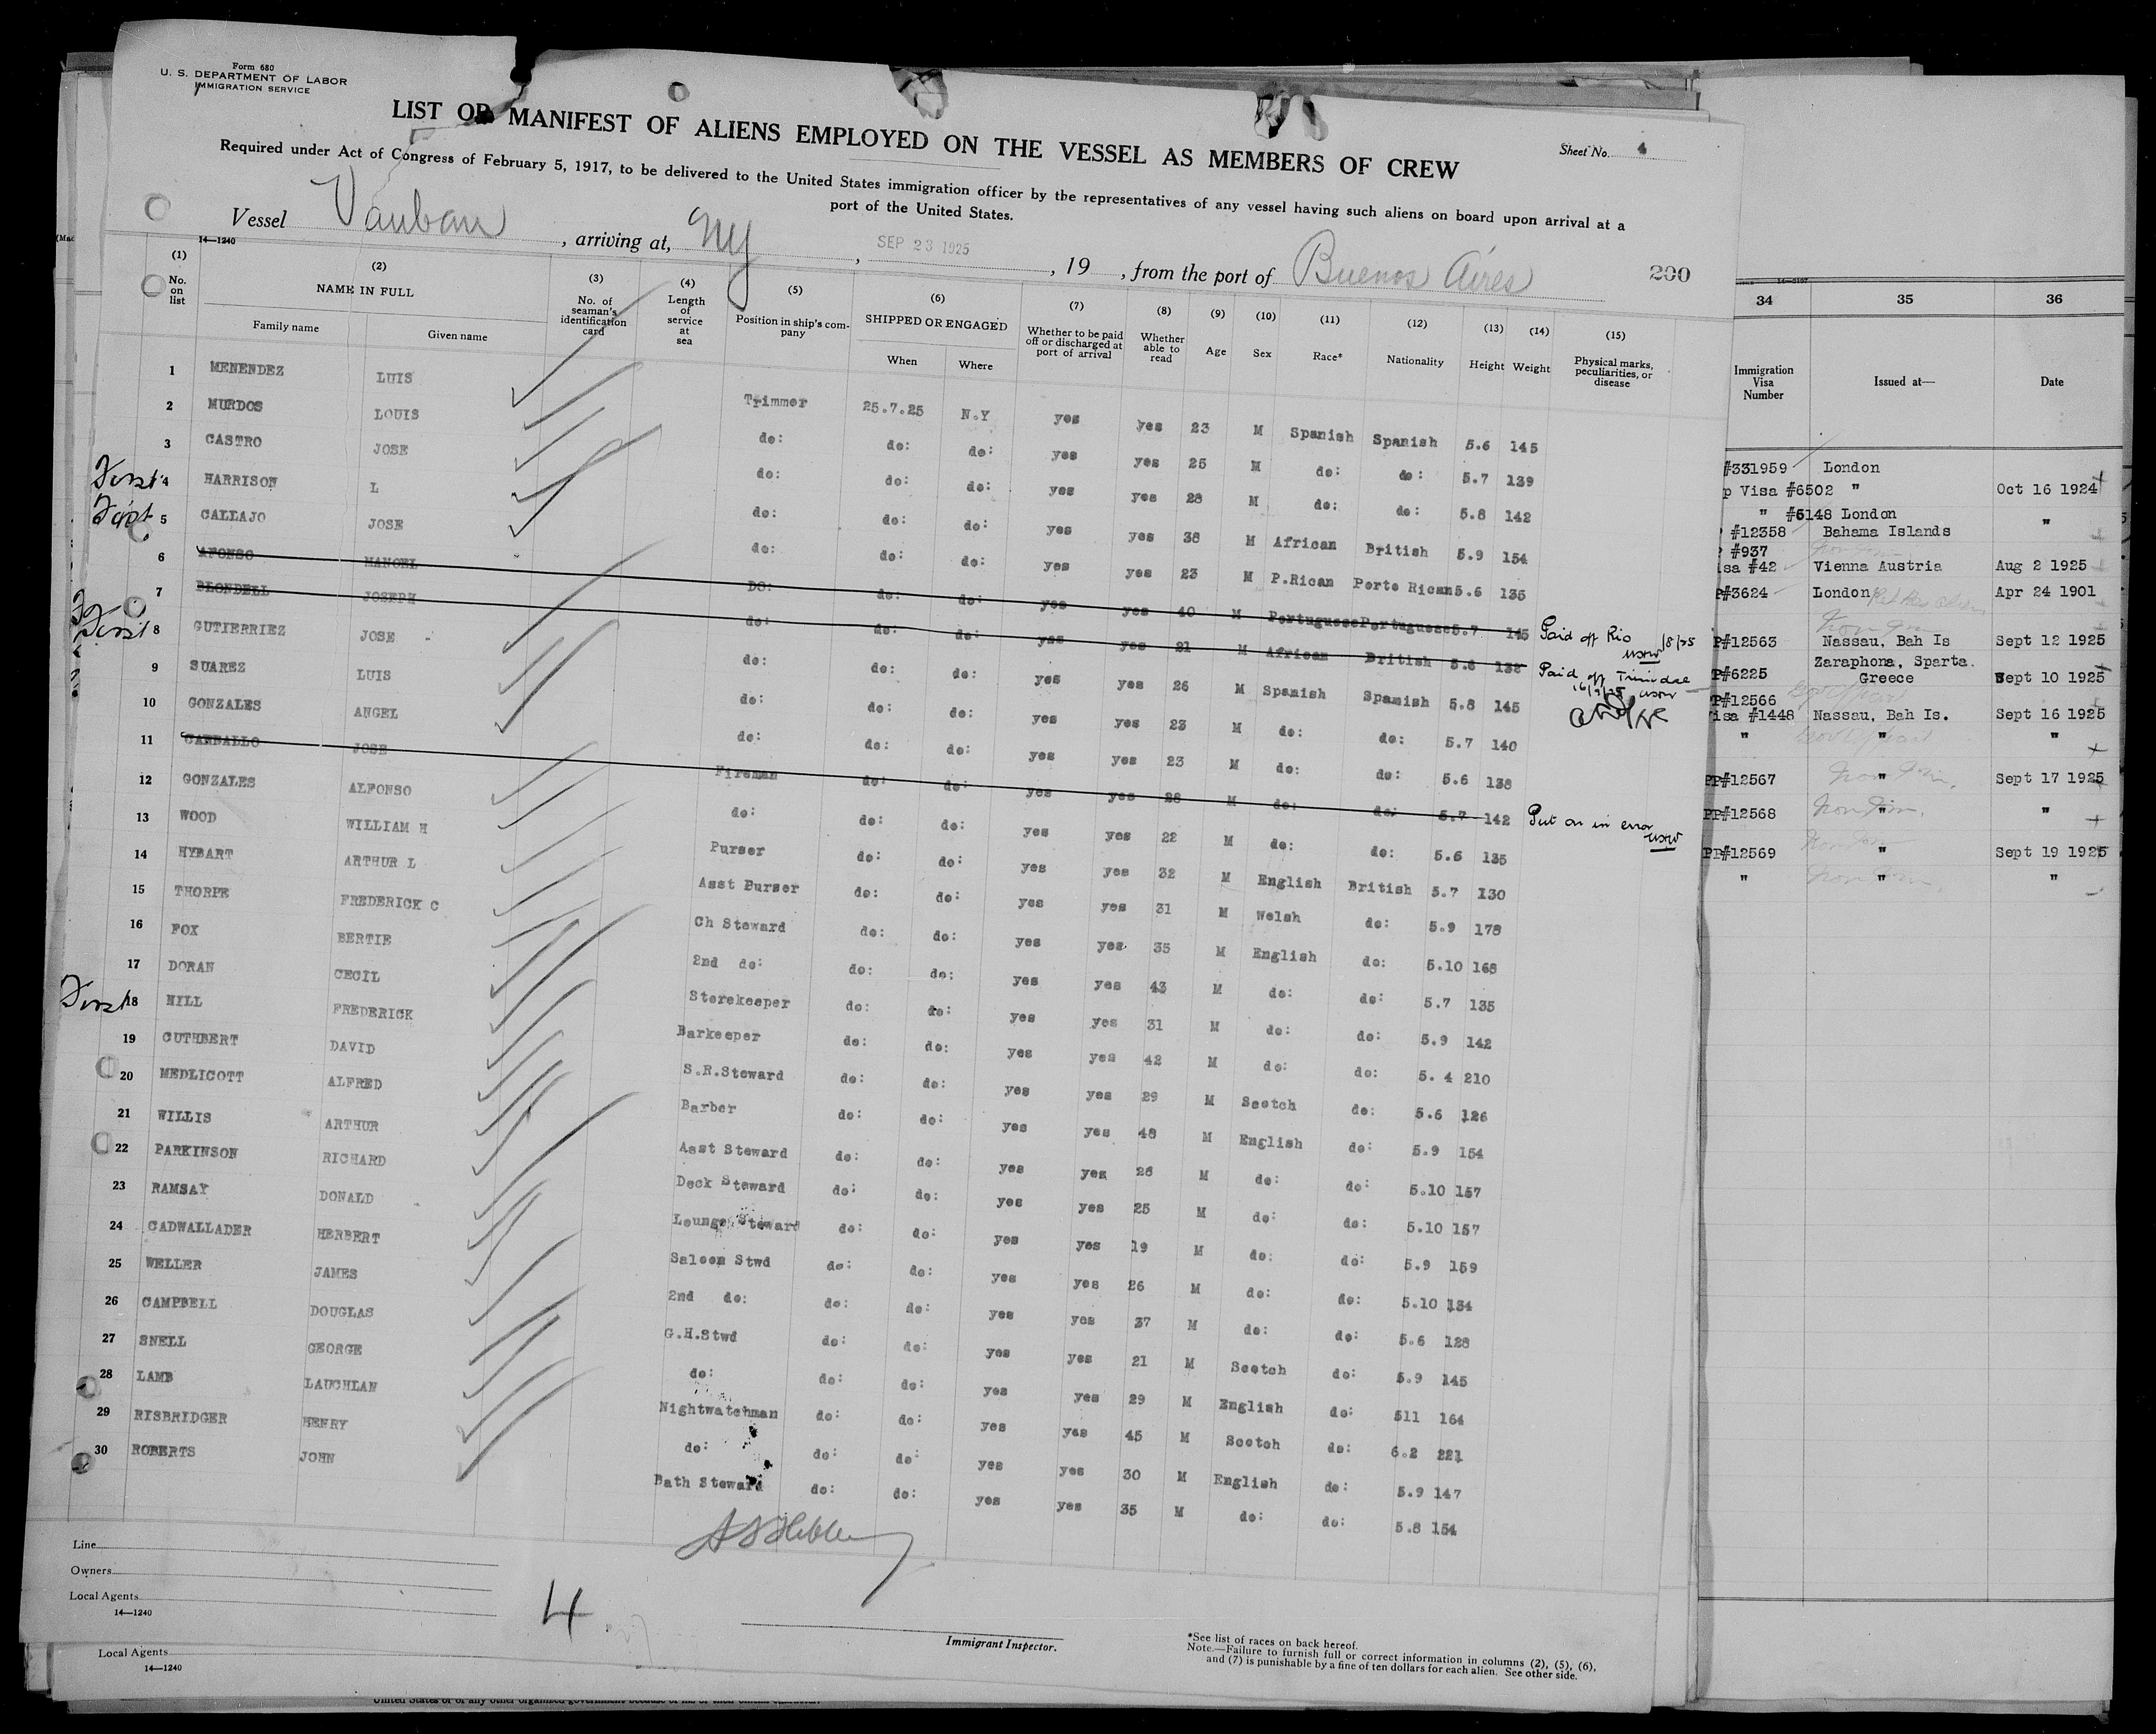 Form 680
U. S. DEPARTMENT OF LABOR
IMMIGRATION SERVICE
LIST OR MANIFEST OF ALIENS EMPLOYED ON THE VESSEL AS MEMBERS OF CREW
Sheet No. 4
Required under Act of Congress of February 5, 1917, to be delivered to the United States immigration officer by the representatives of any vessel having such aliens on board upon arrival at a
port of the United States.
Vessel Vauban, arriving at, NY, SEP 23 1925, 19, from the port of Buenos Aires
200
14—1240
(1) (2) (3) (4) (5) (6) (7) (8) (9) (10) (11) (12) (13) (14) (15)
No. on list NAME IN FULL No. of seaman's identification card Length of service at sea Position in ship's company SHIPPED OR ENGAGED Whether to be paid off or discharged at port of arrival Whether able to read Age Sex Race* Nationality Height Weight Physical marks, peculiarities, or disease
Family name Given name When Where
1 MENENDEZ LUIS Trimmer 25.7.25 N.Y yes yes 23 M Spanish Spanish 5.6 145
2 MURDOS LOUIS do: do: do: yes yes 25 M do: do: 5.7 139
3 CASTRO JOSE do: do: do: yes yes 28 M do: do: 5.8 142
First 4 HARRISON L do: do: do: yes yes 38 M African British 5.9 154
First 5 CALLAJO JOSE do: do: do: yes yes 23 M P.Rican Porto Rican 5.6 135
6 AFONSO MANOEL DO: do: do: yes yes 40 M Portuguese Portuguese 5.7 145 Paid off Rio /8/25
7 BLONDELL JOSEPH do: do: do: yes yes 21 M African British 5.8 138 Paid off Trinidad
First 8 GUTIERRIEZ JOSE do: do: do: yes yes 26 M Spanish Spanish 5.8 145
9 SUAREZ LUIS do: do: do: yes yes 23 M do: do: 5.7 140
10 GONZALES ANGEL do: do: do: yes yes 23 M do: do: 5.6 138
11 CARBALLO JOSE Fireman do: do: yes yes 28 M do: do: 5.7 142 Put on in error
12 GONZALES ALFONSO do: do: do: yes yes 22 M do: do: 5.6 135
13 WOOD WILLIAM H Purser do: do: yes yes 32 M English British 5.7 130
14 HYBART ARTHUR L Asst Purser do: do: yes yes 31 M Welsh do: 5.9 178
15 THORPE FREDERICK C Ch Steward do: do: yes yes 35 M English do: 5.10 168
16 FOX BERTIE 2nd do: do: do: yes yes 43 M do: do: 5.7 135
17 DORAN CECIL Storekeeper do: do: yes yes 31 M do: do: 5.9 142
First 18 HILL FREDERICK Barkeeper do: do: yes yes 42 M do: do: 5. 4 210
19 CUTHBERT DAVID S.R.Steward do: do: yes yes 29 M Scotch do: 5.6 126
20 MEDLICOTT ALFRED Barber do: do: yes yes 48 M English do: 5.9 154
21 WILLIS ARTHUR Asst Steward do: do: yes yes 26 M do: do: 5.10 157
22 PARKINSON RICHARD Deck Steward do: do: yes yes 25 M do: do: 5.10 157
23 RAMSAY DONALD Lounge Steward do: do: yes yes 19 M do: do: 5.9 159
24 CADWALLADER HERBERT Saloon Stwd do: do: yes yes 26 M do: do: 5.10 134
25 WELLER JAMES 2nd do: do: do: yes yes 37 M do: do: 5.6 128
26 CAMPBELL DOUGLAS G.H.Stwd do: do: yes yes 21 M Scotch do: 5.9 145
27 SNELL GEORGE do: do: do: yes yes 29 M English do: 511 164
28 LAMB LAUCHLAN Nightwatchman do: do: yes yes 45 M Scotch do: 6.2 221
29 RISBRIDGER HENRY do: do: do: yes yes 30 M English do: 5.9 147
30 ROBERTS JOHN Bath Steward do: do: yes yes 35 M do: do: 5.8 154
Line
Owners
Local Agents
14—1240
4
Immigrant Inspector.
*See list of races on back hereof.
Note.—Failure to furnish full or correct information in columns (2), (5), (6),
and (7) is punishable by a fine of ten dollars for each alien. See other side.
Local Agents
14—1240
34 35 36
Immigration Visa Number Issued at— Date
#331959 London
p Visa #6502 " Oct 16 1924
" #6148 London "
#12358 Bahama Islands
#937
isa #42 Vienna Austria Aug 2 1925
P#3624 London Apr 24 1901
P#12563 Nassau, Bah Is Sept 12 1925
Zaraphona, Sparta.
P#6225 Greece Sept 10 1925
PP#12566
isa #1448 Nassau, Bah Is. Sept 16 1925
" " "
PP#12567 " Sept 17 1925
PP#12568 " "
PP#12569 " Sept 19 1925
" " "